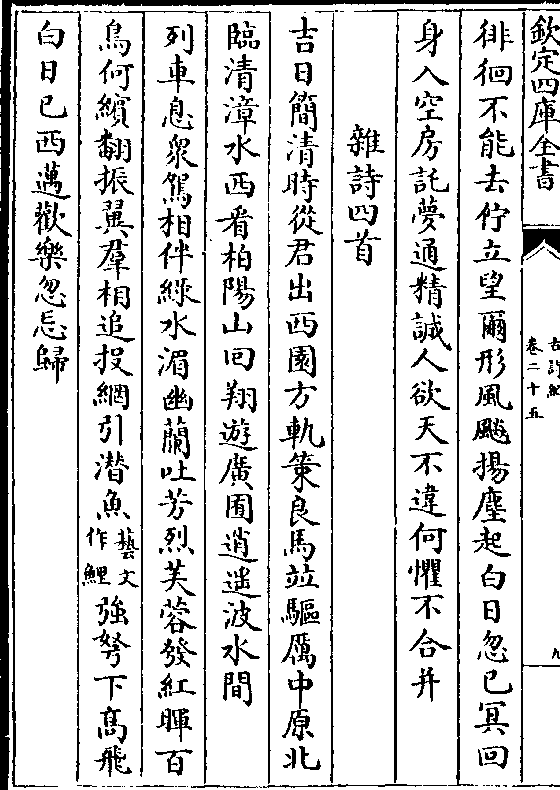 欽定四庫全書
卷二十五
九
徘徊不能去佇立望爾形風飚揚塵起白日忽已冥回
身入空房託夢通精誠人欲天不違何懼不合并
雜詩四首
吉日簡清時從君出西園方軌策良馬竝驅厲中原北
臨清漳水西看柏陽山回翔遊廣囿逍遥波水間
列車息衆駕相伴綠水湄幽蘭吐芳烈芙蓉發紅暉百
鳥何繽翻振翼羣相追投網引潜魚藝文作鯉強弩下高飛
白日已西邁歡樂忽忘歸